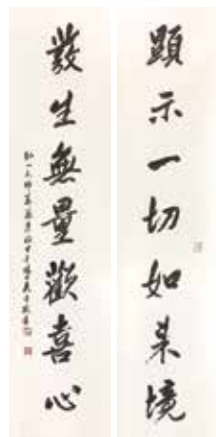 顯示一切如來境
發生無量歡喜心